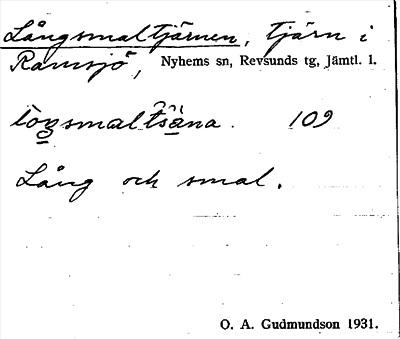 Långsmaltjärnen, tjärn i
Ramsjö, Nyhems sn, Revsunds tg, Jämtl. l.
109
Lång och smal.
O. A. Gudmundson 1931.